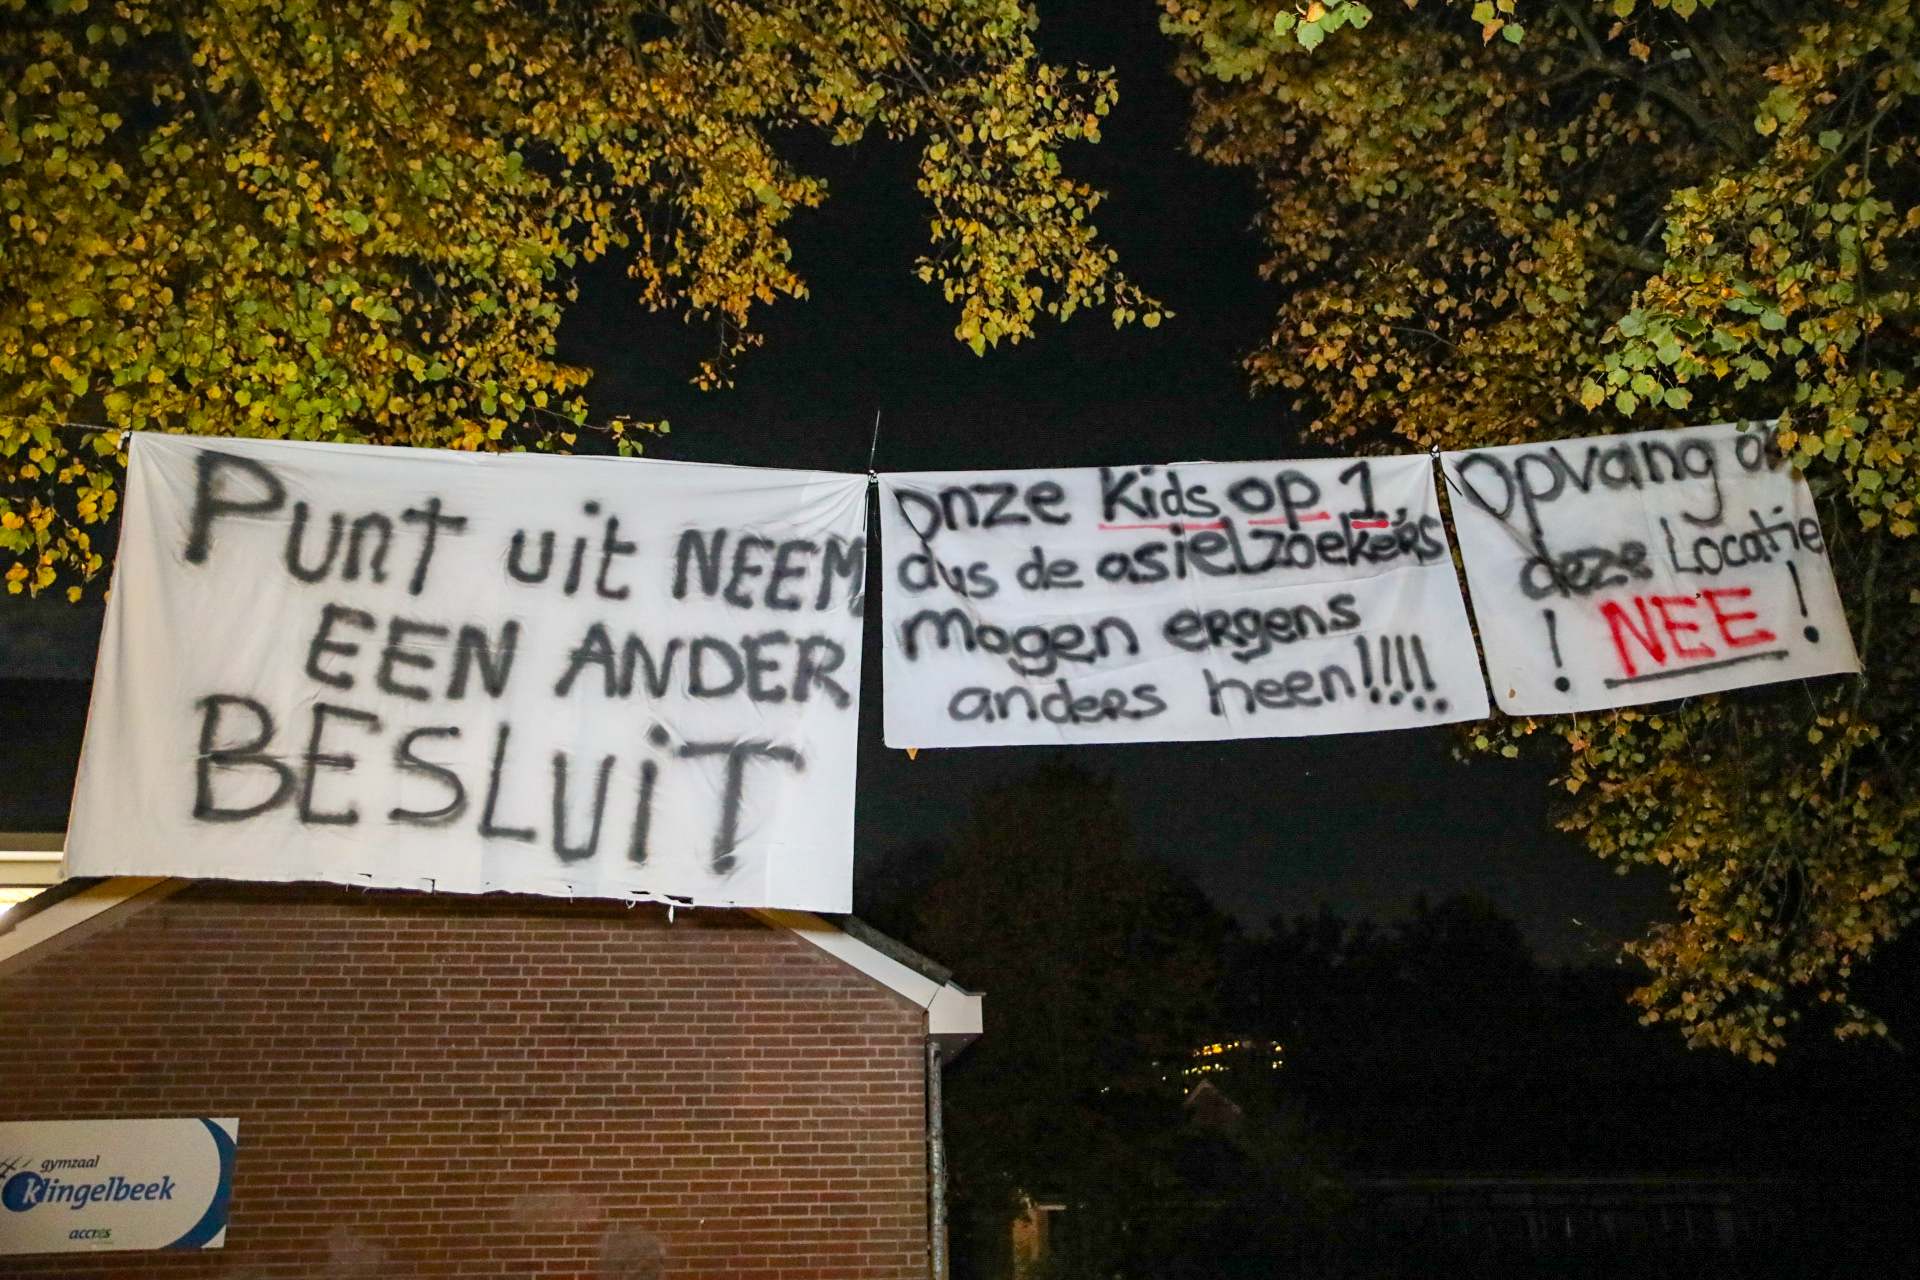 Punt uit NEEM
EEN ANDER
BESLUiT
Onze Kids op 1,
dus de asielzoekers
mogen ergens
anders heen!!!!
Opvang
deze Locatie
! NEE !
gymzaal
klingelbeek
accres